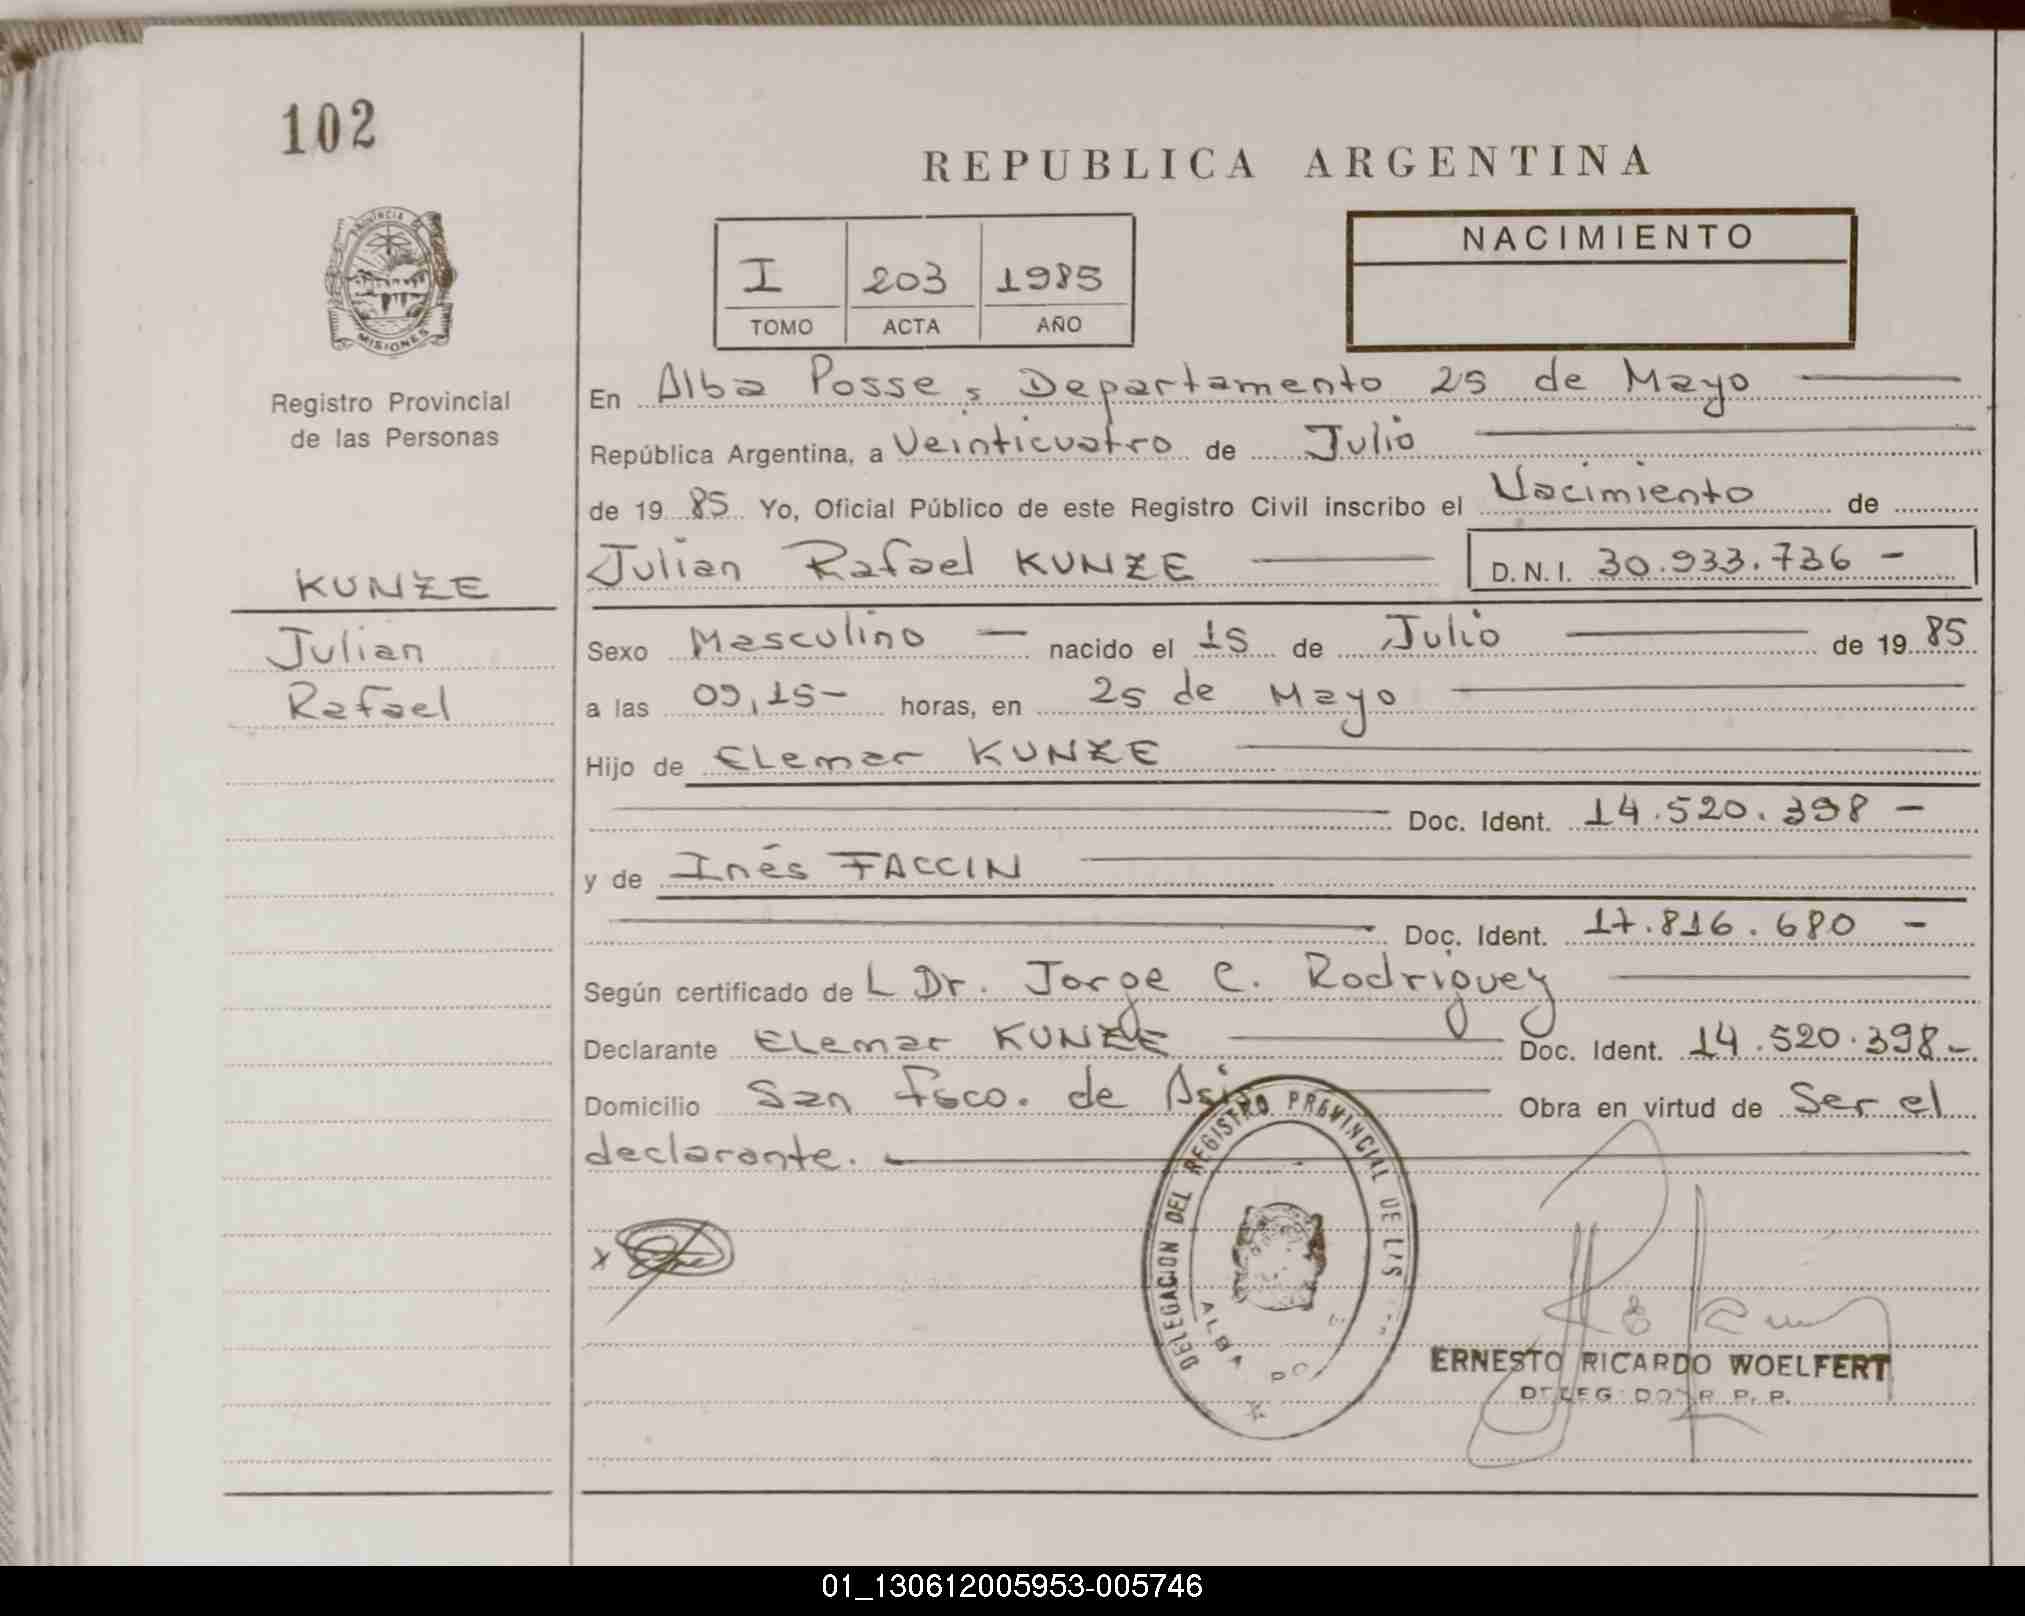 102
REPUBLICA ARGENTINA
PROVINCIA DE
MISIONES
I 203 1985
TOMO ACTA AÑO
NACIMIENTO
Registro Provincial
de las Personas
KUNZE
Julian
Rafael
En Alba Posse, Departamento 25 de Mayo
República Argentina, a Veinticuatro de Julio
de 19 85 Yo, Oficial Público de este Registro Civil inscribo el Nacimiento de
Julian Rafael KUNZE D.N.I. 30.933.736 -
Sexo Masculino — nacido el 15 de Julio de 19 85
a las 09,15- horas, en 25 de Mayo
Hijo de Elemar KUNZE
Doc. Ident. 14.520.398 -
y de Inés FACCIN
Doc. Ident. 17.816.680 -
Según certificado de L Dr. Jorge C. Rodriguez
Declarante Elemar KUNZE Doc. Ident. 14.520.398-
Domicilio San Fsco. de Asis Obra en virtud de Ser el
declarante.
x
DELEGACION DEL REGISTRO PROVINCIAL DE LAS
ALBA PO
ERNESTO RICARDO WOELFERT
DELEGADO R. P. P.
01_130612005953-005746